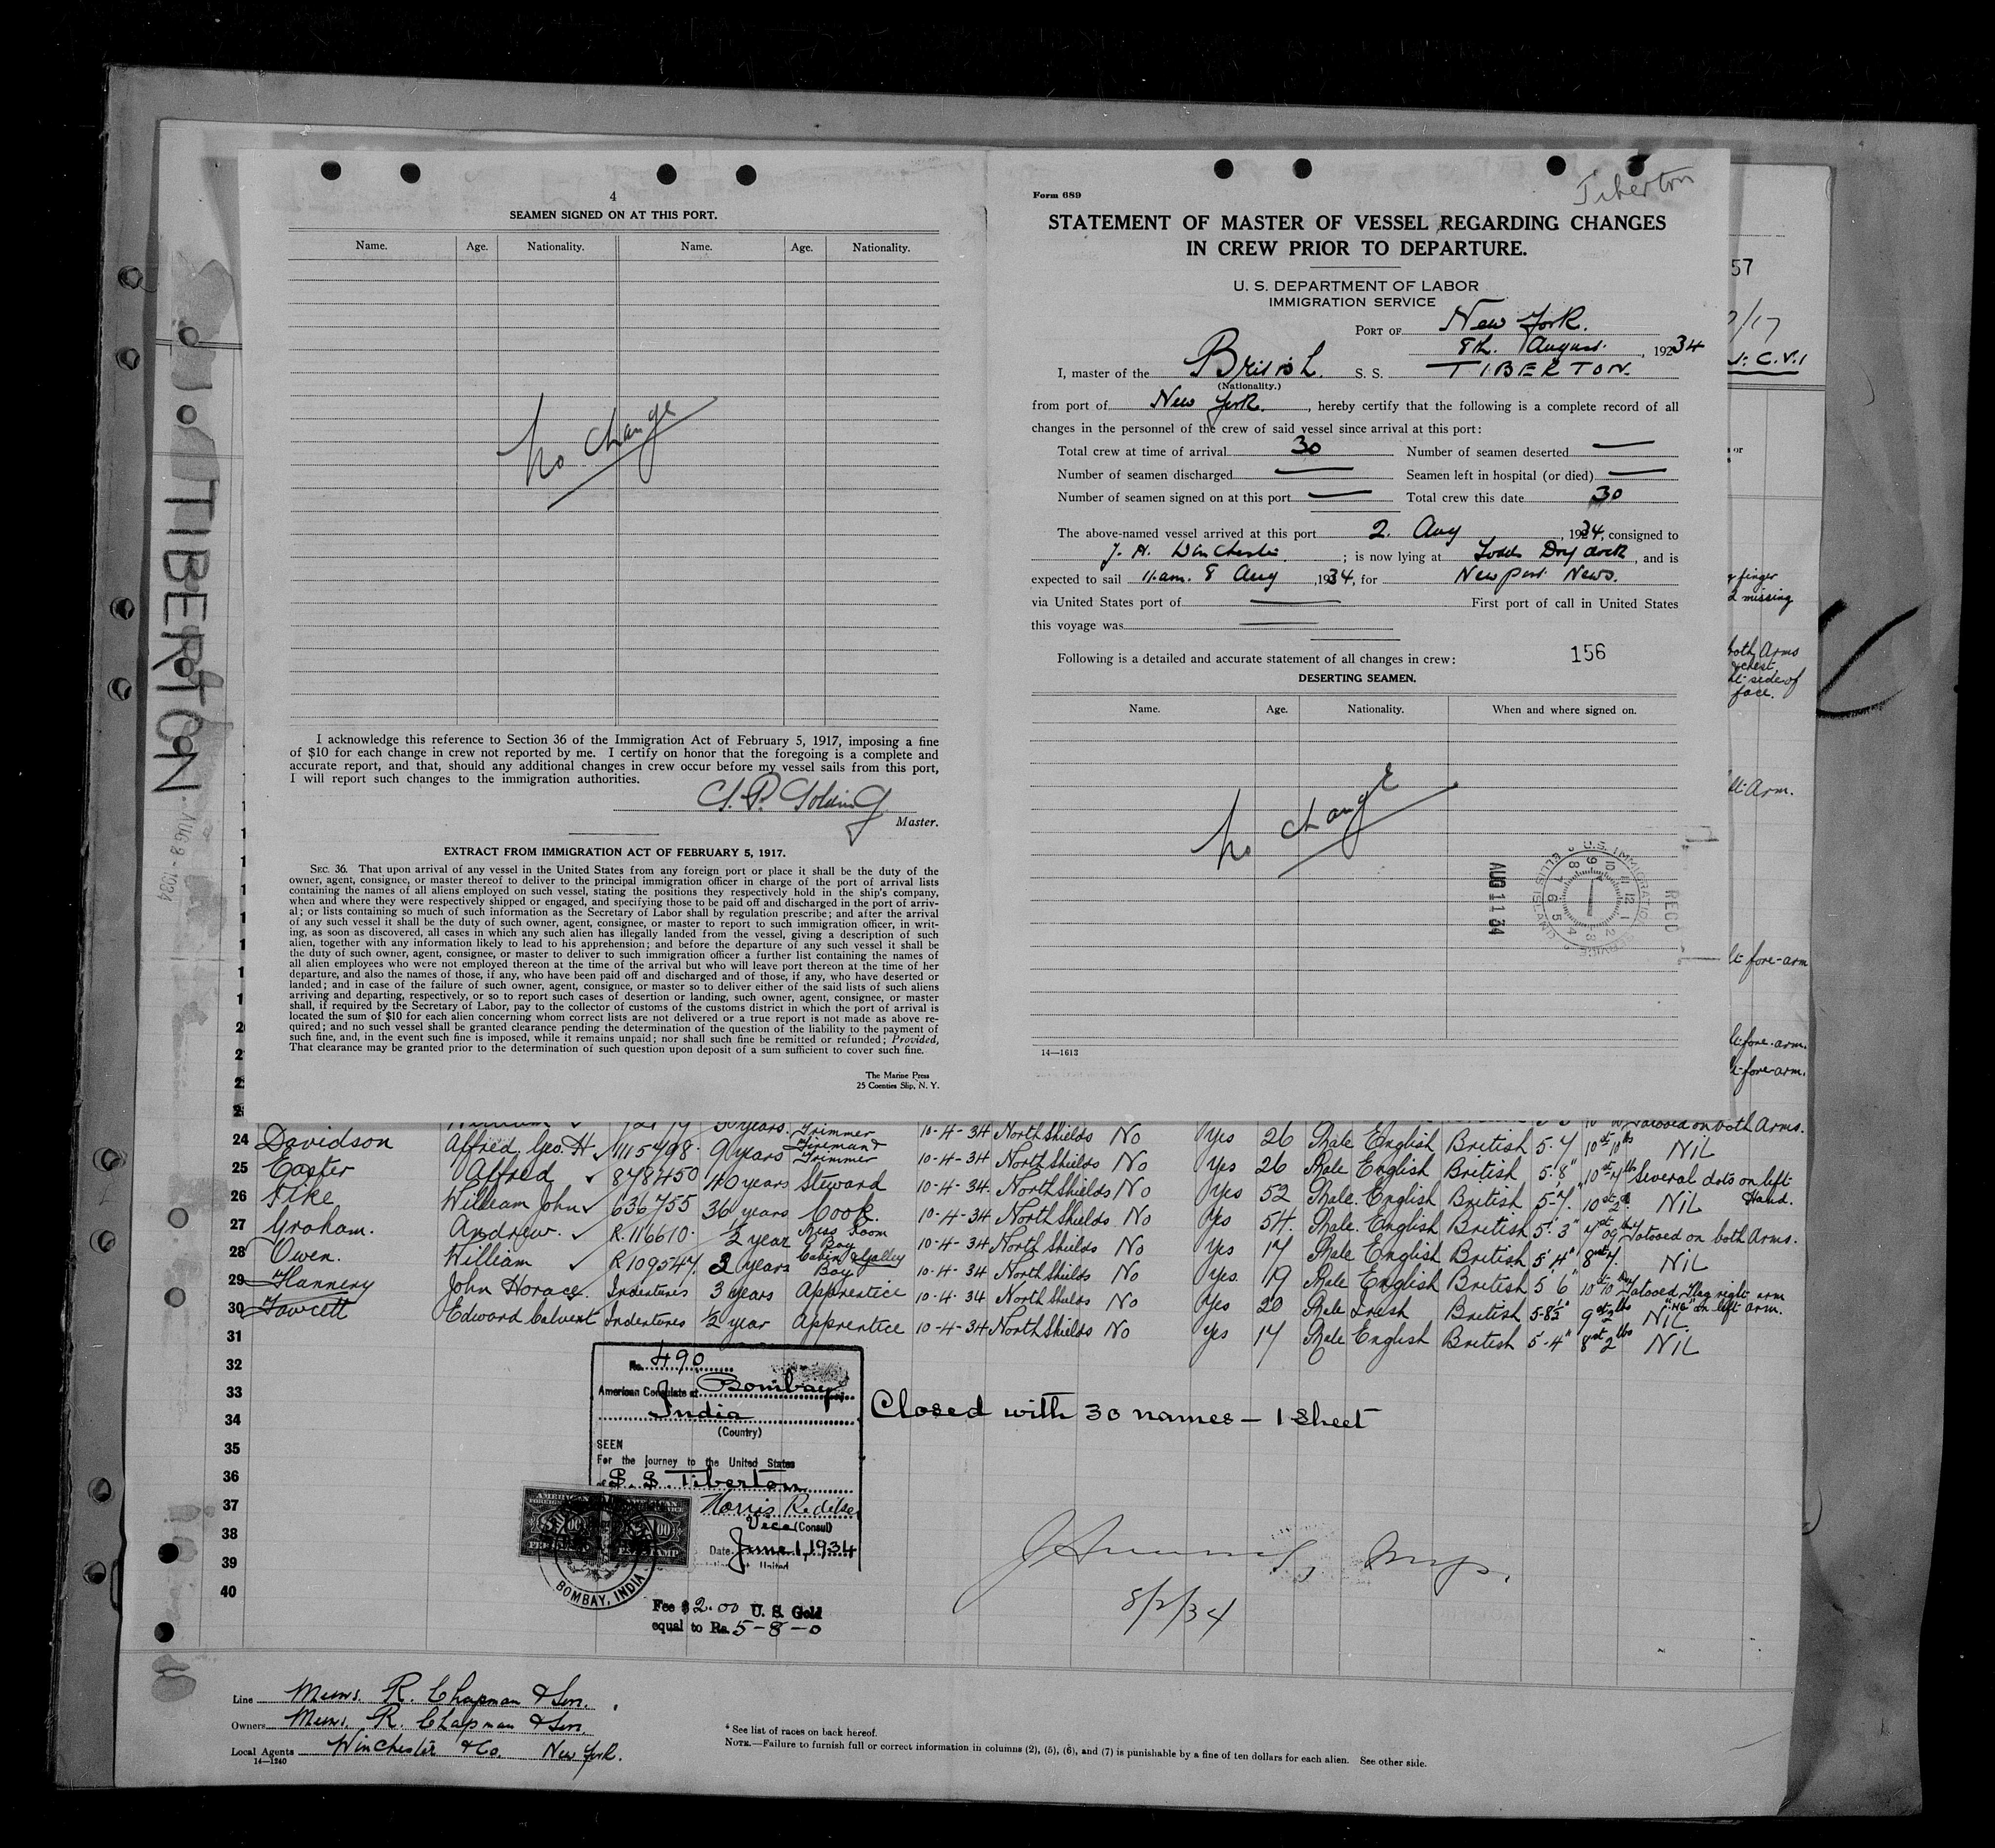 4
SEAMEN SIGNED ON AT THIS PORT.
Name. Age. Nationality. Name. Age. Nationality.
No change
I acknowledge this reference to Section 36 of the Immigration Act of February 5, 1917, imposing a fine
of $10 for each change in crew not reported by me. I certify on honor that the foregoing is a complete and
accurate report, and that, should any additional changes in crew occur before my vessel sails from this port,
I will report such changes to the immigration authorities.
Master.
EXTRACT FROM IMMIGRATION ACT OF FEBRUARY 5, 1917.
SEC. 36. That upon arrival of any vessel in the United States from any foreign port or place it shall be the duty of the
owner, agent, consignee, or master thereof to deliver to the principal immigration officer in charge of the port of arrival lists
containing the names of all aliens employed on such vessel, stating the positions they respectively hold in the ship's company,
when and where they were respectively shipped or engaged, and specifying those to be paid off and discharged in the port of arriv-
al; or lists containing so much of such information as the Secretary of Labor shall by regulation prescribe; and after the arrival
of any such vessel it shall be the duty of such owner, agent, consignee, or master to report to such immigration officer, in writ-
ing, as soon as discovered, all cases in which any such alien has illegally landed from the vessel, giving a description of such
alien, together with any information likely to lead to his apprehension; and before the departure of any such vessel it shall be
the duty of such owner, agent, consignee, or master to deliver to such immigration officer a further list containing the names of
all alien employees who were not employed thereon at the time of the arrival but who will leave port thereon at the time of her
departure, and also the names of those, if any, who have been paid off and discharged and of those, if any, who have deserted or
landed; and in case of the failure of such owner, agent, consignee, or master so to deliver either of the said lists of such aliens
arriving and departing, respectively, or so to report such cases of desertion or landing, such owner, agent, consignee, or master
shall, if required by the Secretary of Labor, pay to the collector of customs of the customs district in which the port of arrival is
located the sum of $10 for each alien concerning whom correct lists are not delivered or a true report is not made as above re-
quired; and no such vessel shall be granted clearance pending the determination of the question of the liability to the payment of
such fine, and, in the event such fine is imposed, while it remains unpaid; nor shall such fine be remitted or refunded; Provided,
That clearance may be granted prior to the determination of such question upon deposit of a sum sufficient to cover such fine.
The Marine Press
25 Coenties Slip, N. Y.
Tiberton
Form 689
STATEMENT OF MASTER OF VESSEL REGARDING CHANGES
IN CREW PRIOR TO DEPARTURE.
U. S. DEPARTMENT OF LABOR
IMMIGRATION SERVICE
PORT OF New York.
8th. August. , 1934
I, master of the British. S. S. TIBERTON.
(Nationality.)
from port of New York. , hereby certify that the following is a complete record of all
changes in the personnel of the crew of said vessel since arrival at this port:
Total crew at time of arrival 30 Number of seamen deserted —
Number of seamen discharged — Seamen left in hospital (or died) —
Number of seamen signed on at this port — Total crew this date 30
The above-named vessel arrived at this port 2. Aug , 1934, consigned to
J. H. Winchester ; is now lying at Todds Dry dock , and is
expected to sail 11.am. 8 Aug , 1934, for Newport News.
via United States port of — First port of call in United States
this voyage was —
Following is a detailed and accurate statement of all changes in crew: 156
DESERTING SEAMEN.
Name. Age. Nationality. When and where signed on.
No change
AUG 11 34
U.S. IMMIGRATION SERVICE ELLIS ISLAND
REC'D
14—1613
TIBERTON
AUG 2 - 1934
57
finger
missing
both Arms
chest
side of
face.
Arm.
fore-arm
fore-arm.
fore-arm.
Trimmer Tatooed on both Arms.
24 Davidson Alfred Geo. H. 1115498 9 years Fireman & Trimmer 10-4-34 North Shields No Yes 26 Male English British 5-7 NIL
25 Easter Alfred 878450 40 years Steward 10-4-34 North Shields No Yes 26 Male English British 5'8" Several dots on left Hand.
26 Pike William John 636755 36 years Cook 10-4-34 North Shields No Yes 52 Male English British 5-7 NIL
27 Graham. Andrew. R.116610. ½ year Mess Room Boy 10-4-34 North Shields No Yes 54 Male English British 5'3" Tatooed on both Arms.
28 Owen. William R109547 2 years Cabin & Galley Boy 10-4-34 North Shields No Yes 17 Male English British 5'4" NIL
29 Flannery John Horace. Indentures 3 years Apprentice 10-4-34 North Shields No Yes 19 Male English British 5'6" Tatooed Flag right arm on left arm.
30 Fawcett Edward Calvert Indentures ½ year Apprentice 10-4-34 North Shields No Yes 20 Male Irish British 5-8½" NIL
31 Yes 17 Male English British 5-4" NIL
32
33
34
35
36
37
38
39
40
No. 490
American Consulate at Bombay
India
(Country)
SEEN
For the journey to the United States
S. S. Tiberton
Vice (Consul)
Date June 1, 1934
BOMBAY, INDIA
Fee $ 2.00 U. S. Gold
equal to Rs. 5-8-0
Closed with 30 names — 1 Sheet
8/2/34
Line Messrs. R. Chapman & Son.
Owners Messrs. R. Chapman & Son.
Local Agents Winchester & Co. New York.
14—1240
* See list of races on back hereof.
NOTE.—Failure to furnish full or correct information in columns (2), (5), (6), and (7) is punishable by a fine of ten dollars for each alien. See other side.